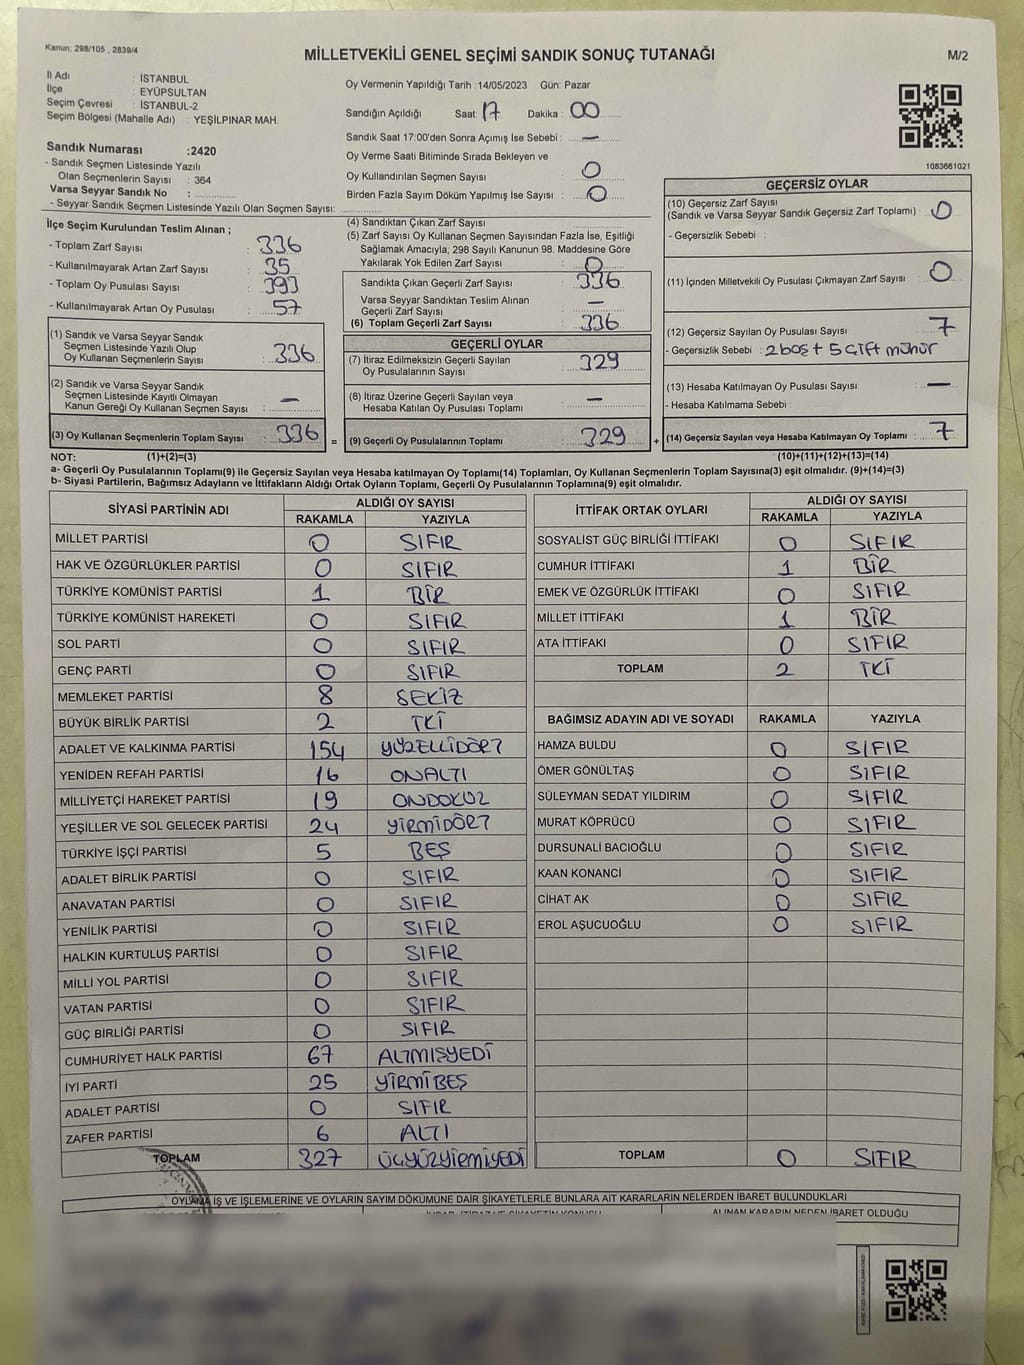 Kanun; 298/105 , 2839/4
MİLLETVEKİLİ GENEL SEÇİMİ SANDIK SONUÇ TUTANAĞI
M/2
İl Adı : İSTANBUL
İlçe : EYÜPSULTAN
Seçim Çevresi : İSTANBUL-2
Seçim Bölgesi (Mahalle Adı) : YEŞİLPINAR MAH.
Sandık Numarası :2420
- Sandık Seçmen Listesinde Yazılı
Olan Seçmenlerin Sayısı : 364
Varsa Seyyar Sandık No :
- Seyyar Sandık Seçmen Listesinde Yazılı Olan Seçmen Sayısı:
Oy Vermenin Yapıldığı Tarih : 14/05/2023 Gün: Pazar
Sandığın Açıldığı Saat: 17 Dakika : 00
Sandık Saat 17:00'den Sonra Açımış İse Sebebi : —
Oy Verme Saati Bitiminde Sırada Bekleyen ve
Oy Kullandırılan Seçmen Sayısı : 0
Birden Fazla Sayım Döküm Yapılmış İse Sayısı : 0
1083661021
İlçe Seçim Kurulundan Teslim Alınan ;
- Toplam Zarf Sayısı : 336
- Kullanılmayarak Artan Zarf Sayısı : 35
- Toplam Oy Pusulası Sayısı : 393
- Kullanılmayarak Artan Oy Pusulası : 57
(1) Sandık ve Varsa Seyyar Sandık
Seçmen Listesinde Yazılı Olup
Oy Kullanan Seçmenlerin Sayısı : 336
(2) Sandık ve Varsa Seyyar Sandık
Seçmen Listesinde Kayıtlı Olmayan
Kanun Gereği Oy Kullanan Seçmen Sayısı : —
(3) Oy Kullanan Seçmenlerin Toplam Sayısı : 336 =
(4) Sandıktan Çıkan Zarf Sayısı :
(5) Zarf Sayısı Oy Kullanan Seçmen Sayısından Fazla İse, Eşitliği
Sağlamak Amacıyla; 298 Sayılı Kanunun 98. Maddesine Göre
Yakılarak Yok Edilen Zarf Sayısı : 0
Sandıkta Çıkan Geçerli Zarf Sayısı : 336
Varsa Seyyar Sandıktan Teslim Alınan
Geçerli Zarf Sayısı : —
(6) Toplam Geçerli Zarf Sayısı : 336
GEÇERLİ OYLAR
(7) İtiraz Edilmeksizin Geçerli Sayılan
Oy Pusulalarının Sayısı : 329
(8) İtiraz Üzerine Geçerli Sayılan veya
Hesaba Katılan Oy Pusulası Toplamı : —
(9) Geçerli Oy Pusulalarının Toplamı : 329 +
GEÇERSİZ OYLAR
(10) Geçersiz Zarf Sayısı
(Sandık ve Varsa Seyyar Sandık Geçersiz Zarf Toplamı) : 0
- Geçersizlik Sebebi :
(11) İçinden Milletvekili Oy Pusulası Çıkmayan Zarf Sayısı : 0
(12) Geçersiz Sayılan Oy Pusulası Sayısı : 7
- Geçersizlik Sebebi : 2 boş + 5 Çift mühür
(13) Hesaba Katılmayan Oy Pusulası Sayısı : —
- Hesaba Katılmama Sebebi :
(14) Geçersiz Sayılan veya Hesaba Katılmayan Oy Toplamı : 7
NOT: (1)+(2)=(3)
(10)+(11)+(12)+(13)=(14)
a- Geçerli Oy Pusulalarının Toplamı(9) ile Geçersiz Sayılan veya Hesaba katılmayan Oy Toplamı(14) Toplamları, Oy Kullanan Seçmenlerin Toplam Sayısına(3) eşit olmalıdır. (9)+(14)=(3)
b- Siyasi Partilerin, Bağımsız Adayların ve İttifakların Aldığı Ortak Oyların Toplamı, Geçerli Oy Pusulalarının Toplamına(9) eşit olmalıdır.
SİYASİ PARTİNİN ADI ALDIĞI OY SAYISI
RAKAMLA YAZIYLA
MİLLET PARTİSİ 0 SIFIR
HAK VE ÖZGÜRLÜKLER PARTİSİ 0 SIFIR
TÜRKİYE KOMÜNİST PARTİSİ 1 BİR
TÜRKİYE KOMÜNİST HAREKETİ 0 SIFIR
SOL PARTİ 0 SIFIR
GENÇ PARTİ 0 SIFIR
MEMLEKET PARTİSİ 8 SEKİZ
BÜYÜK BİRLİK PARTİSİ 2 İKİ
ADALET VE KALKINMA PARTİSİ 154 YÜZELLİDÖRT
YENİDEN REFAH PARTİSİ 16 ONALTI
MİLLİYETÇİ HAREKET PARTİSİ 19 ONDOKUZ
YEŞİLLER VE SOL GELECEK PARTİSİ 24 YİRMİDÖRT
TÜRKİYE İŞÇİ PARTİSİ 5 BEŞ
ADALET BİRLİK PARTİSİ 0 SIFIR
ANAVATAN PARTİSİ 0 SIFIR
YENİLİK PARTİSİ 0 SIFIR
HALKIN KURTULUŞ PARTİSİ 0 SIFIR
MİLLİ YOL PARTİSİ 0 SIFIR
VATAN PARTİSİ 0 SIFIR
GÜÇ BİRLİĞİ PARTİSİ 0 SIFIR
CUMHURİYET HALK PARTİSİ 67 ALTMIŞYEDİ
İYİ PARTİ 25 YİRMİBEŞ
ADALET PARTİSİ 0 SIFIR
ZAFER PARTİSİ 6 ALTI
TOPLAM 327 ÜÇYÜZYİRMİYEDİ
İTTİFAK ORTAK OYLARI ALDIĞI OY SAYISI
RAKAMLA YAZIYLA
SOSYALİST GÜÇ BİRLİĞİ İTTİFAKI 0 SIFIR
CUMHUR İTTİFAKI 1 BİR
EMEK VE ÖZGÜRLÜK İTTİFAKI 0 SIFIR
MİLLET İTTİFAKI 1 BİR
ATA İTTİFAKI 0 SIFIR
TOPLAM 2 İKİ
BAĞIMSIZ ADAYIN ADI VE SOYADI RAKAMLA YAZIYLA
HAMZA BULDU 0 SIFIR
ÖMER GÖNÜLTAŞ 0 SIFIR
SÜLEYMAN SEDAT YILDIRIM 0 SIFIR
MURAT KÖPRÜCÜ 0 SIFIR
DURSUNALİ BACIOĞLU 0 SIFIR
KAAN KONANCİ 0 SIFIR
CİHAT AK 0 SIFIR
EROL AŞUCUOĞLU 0 SIFIR
TOPLAM 0 SIFIR
OYLAMA İŞ VE İŞLEMLERİNE VE OYLARIN SAYIM DÖKÜMÜNE DAİR ŞİKAYETLERLE BUNLARA AİT KARARLARIN NELERDEN İBARET BULUNDUKLARI
ALINAN KARARIN NEDEN İBARET OLDUĞU